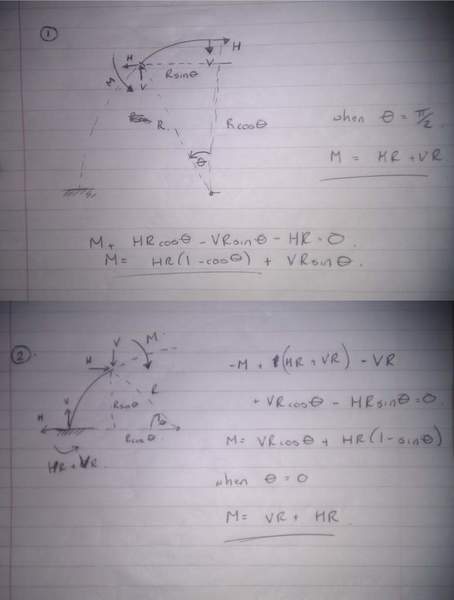 1
H
H
V
M
Rsinθ
V
R
Rcosθ
θ
when θ = π/2
M = HR + VR
M + HRcosθ - VRsinθ - HR = 0.
M = HR(1 - cosθ) + VRsinθ.
2
V
M
H
R
Rsinθ
V
H
θ
Rcosθ
HR + VR
-M + (HR + VR) - VR
+ VRcosθ - HRsinθ = 0
M = VRcosθ + HR(1 - sinθ)
when θ = 0
M = VR + HR